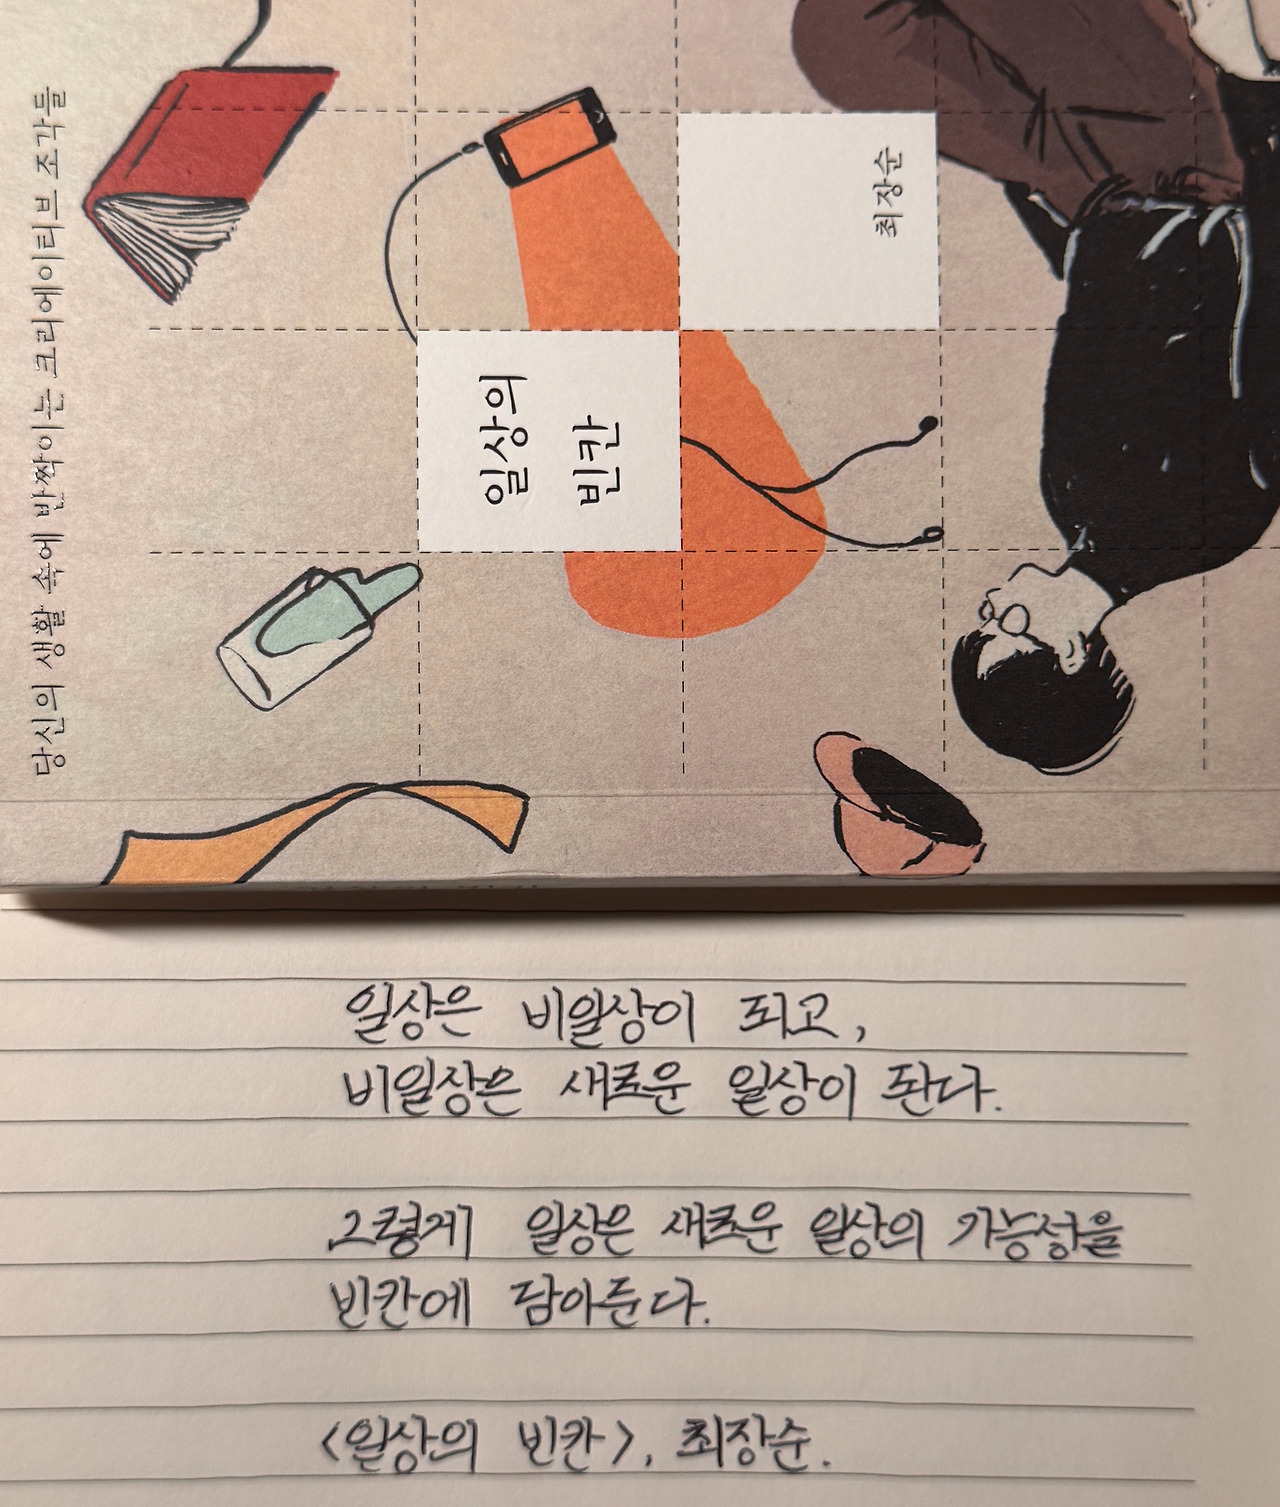 당신의 생활 속에 반짝이는 크리에이티브 조각들
일상의
빈칸
최장순
일상은 비일상이 되고,
비일상은 새로운 일상이 된다.
그렇게 일상은 새로운 일상의 가능성을
빈칸에 담아둔다.
<일상의 빈칸>, 최장순.